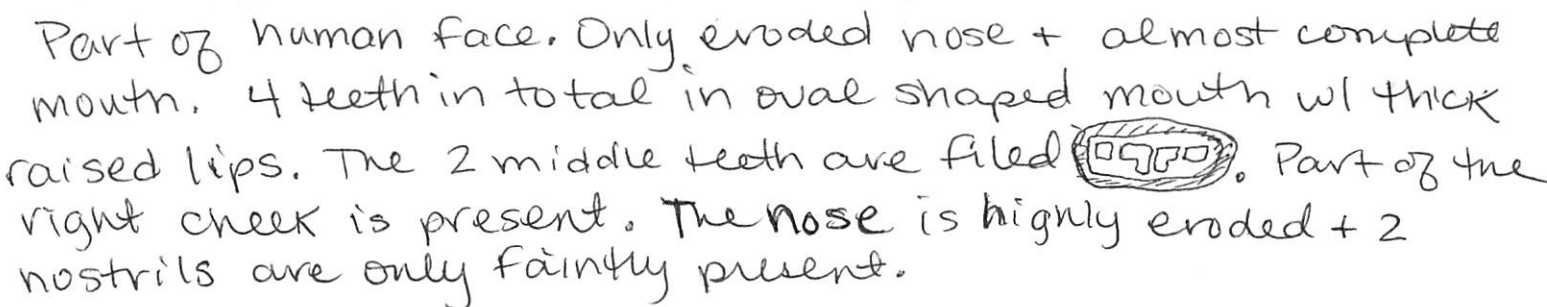 Part of human face. Only eroded nose + almost complete
mouth. 4 teeth in total in oval shaped mouth w/ thick
raised lips. The 2 middle teeth are filed . Part of the
right cheek is present. The nose is highly eroded + 2
nostrils are only faintly present.